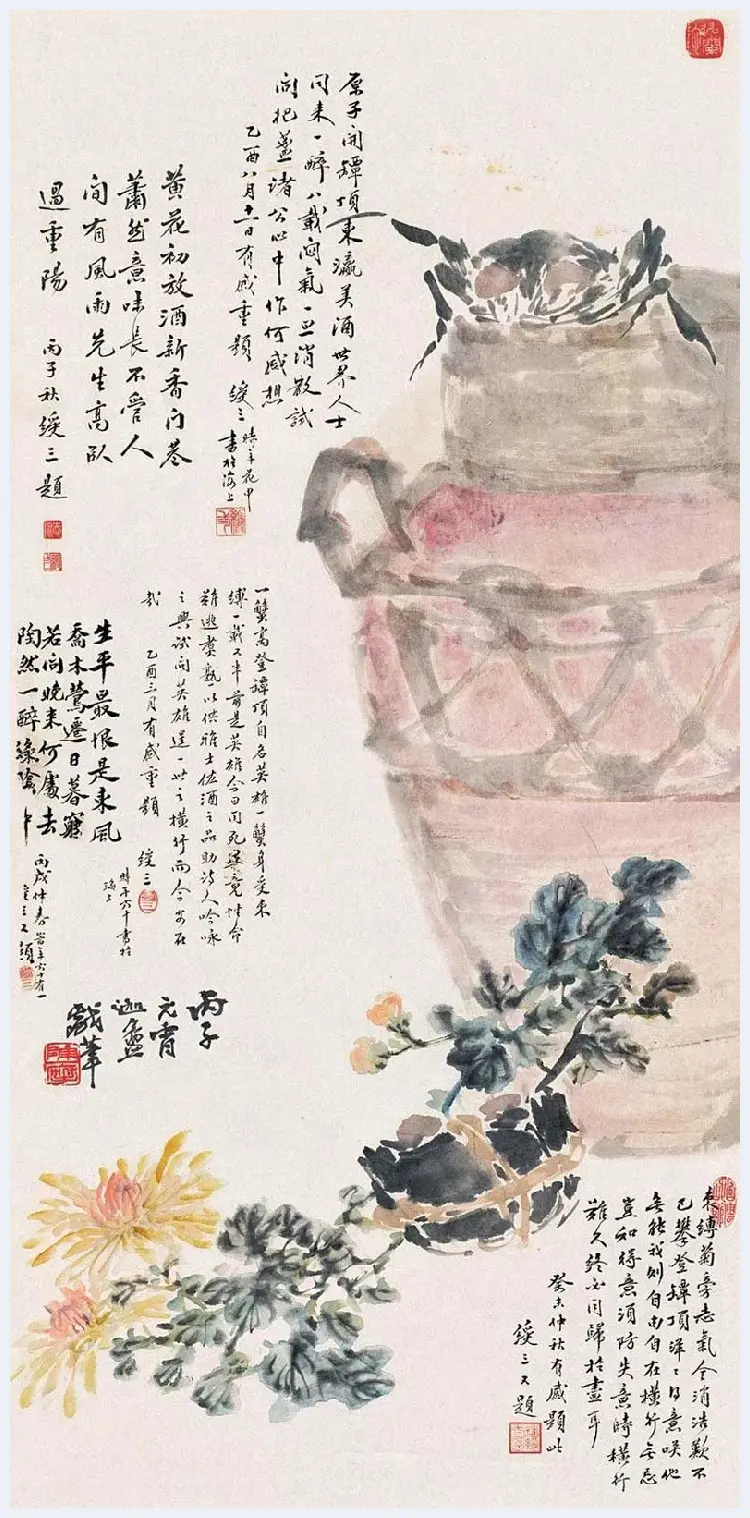 原子開罈項東瀛美酒世界人士
同来一醉八載悶氣一旦消散試
問把盞諸公此中作何感想
乙酉八月十一日有感重題 綏三
時年花甲
書於海上
黄花初放酒新香门巷
蕭然意味長不管人
間有風雨先生高臥
過重陽 丙子秋綏三題
一蟹高登罈頂自名英雄一蟹身受束
縛一載又半前是英雄今日同死畢竟性命
難逃烹熟以供雅士佐酒之品助詩人吟咏
之興試問英雄逞一世之橫行而今安在
哉 乙酉三月有感重題 綏三
時年六十書於
海上
生平最恨是東風
喬木鶯遷日暮窮
若问晚来何處去
陶然一醉綠陰中
丙戌仲春 時年六十有一
綏三又題
丙子
元宵
迦盦
戲筆
束縛菊旁志氣全消浩歎不
已攀登罈頂洋洋得意咲他
無能我則自由自在橫行無忌
豈知得意須防失意時橫行
難久終必同歸於盡耳
癸未仲秋有感題此
綏三又題